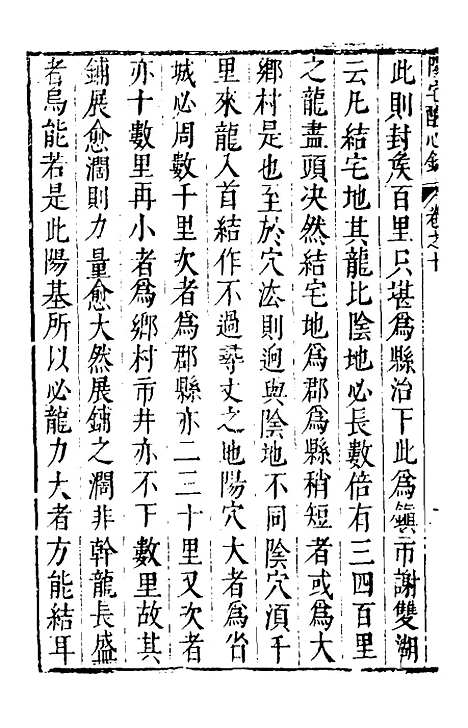 陽宅醒心錄 卷之十
此則封矦百里只堪爲縣治下此爲鎮市謝雙湖
云凡結宅地其龍比陰地必長數倍有三四百里
之龍盡頭决然結宅地爲郡爲縣稍短者或爲大
鄉村是也至於穴法則逈與陰地不同陰穴湏千
里來龍入首結作不過尋丈之地陽穴大者爲省
城必周數千里次者爲郡縣亦二三十里又次者
亦十數里再小者爲鄉村市井亦不下數里故其
鋪展愈濶則力量愈大然展鋪之濶非幹龍長盛
者烏能若是此陽基所以必龍力大者方能結耳